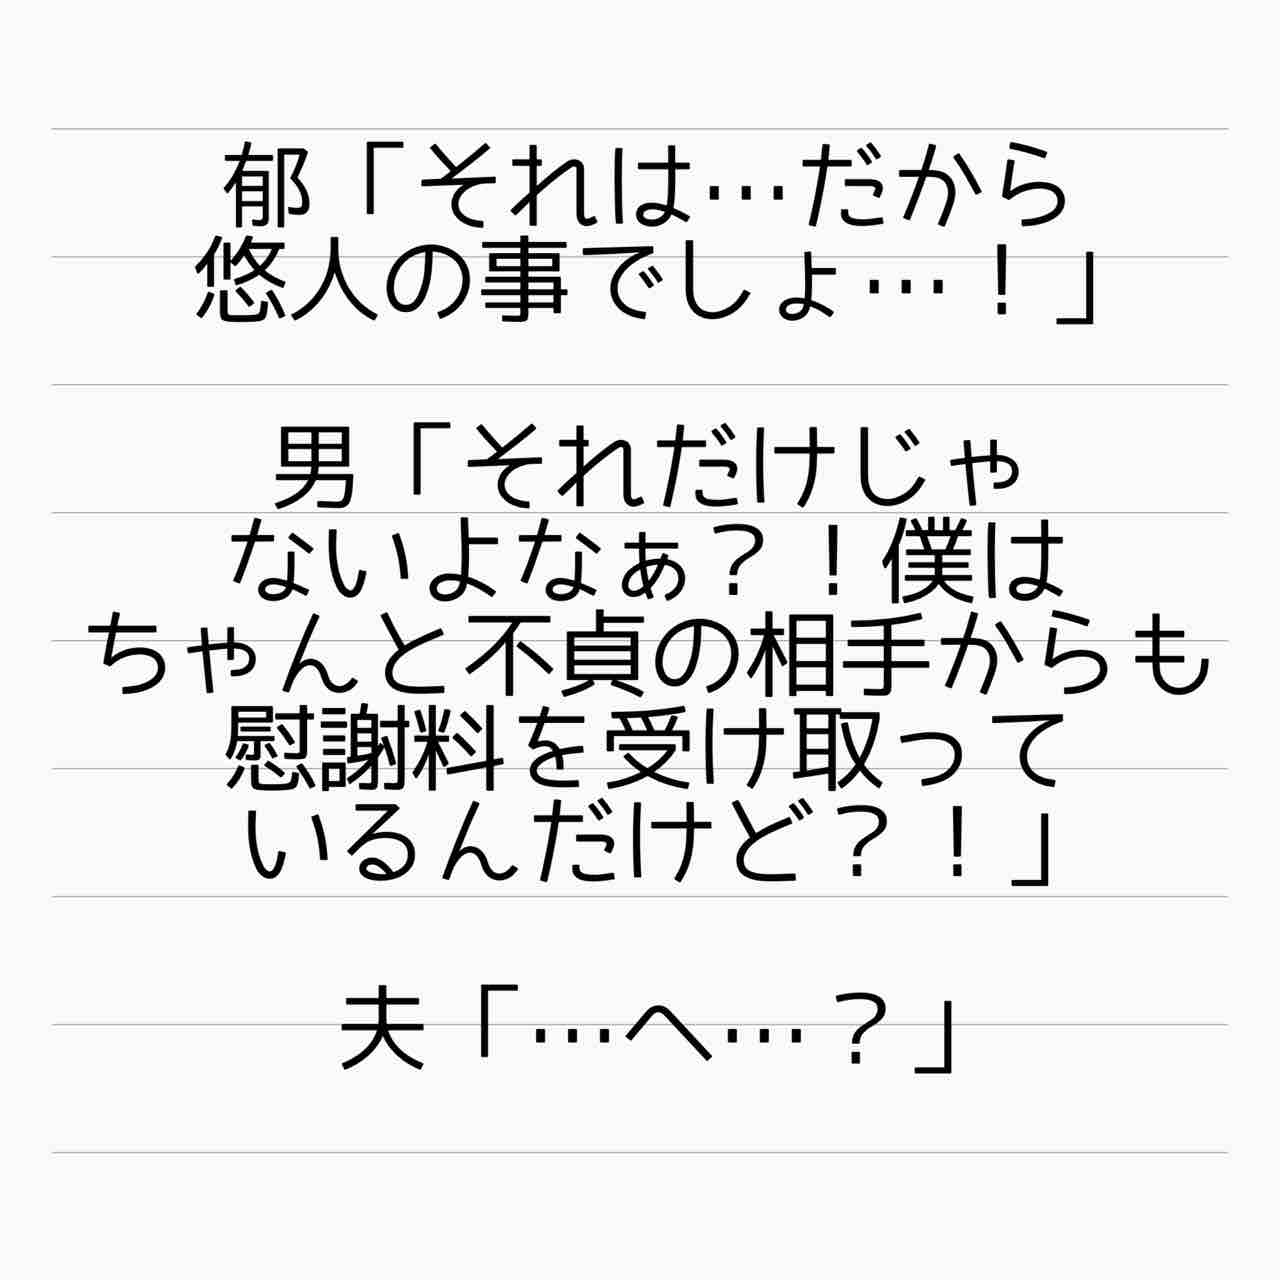 郁「それは…だから
悠人の事でしょ…！」
男「それだけじゃ
ないよなぁ？！僕は
ちゃんと不貞の相手からも
慰謝料を受け取って
いるんだけど？！」
夫「…へ…？」